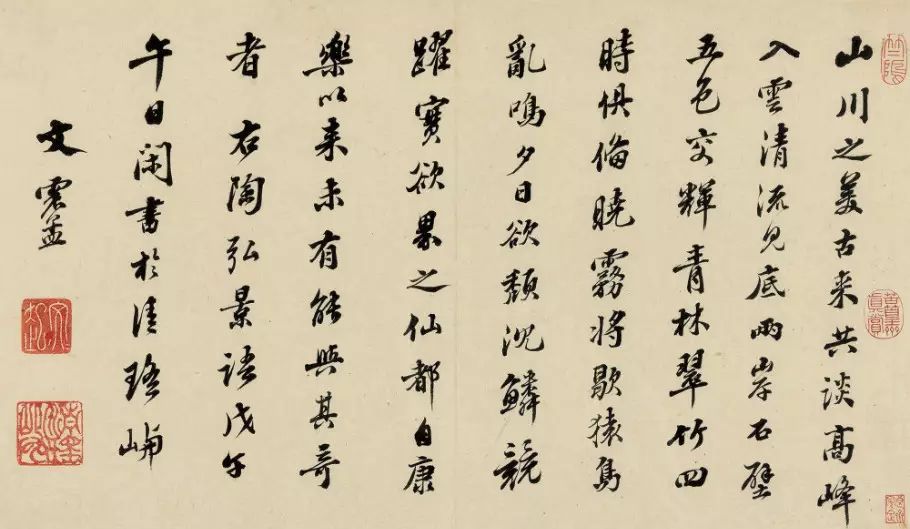 竺塢
山川之美古来共談高峰
入雲清流見底兩岸石壁
五色交輝青林翠竹四
時俱備曉霧將歇猿鳥
亂鳴夕日欲頹沉鱗競
躍實欲界之仙都自康
樂以来未有能與其奇
者 右陶弘景語戊午
午日閑書於清瑤嶼
文震孟
文起